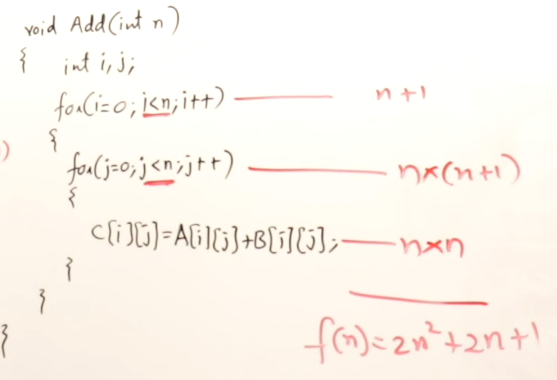 void Add(int n)
{ int i, j;
for(i=0; i<n; i++) n+1
{
)
for(j=0; j<n; j++) n×(n+1)
{
C[i][j]=A[i][j]+B[i][j]; n×n
}
}
}
f(n)=2n²+2n+1